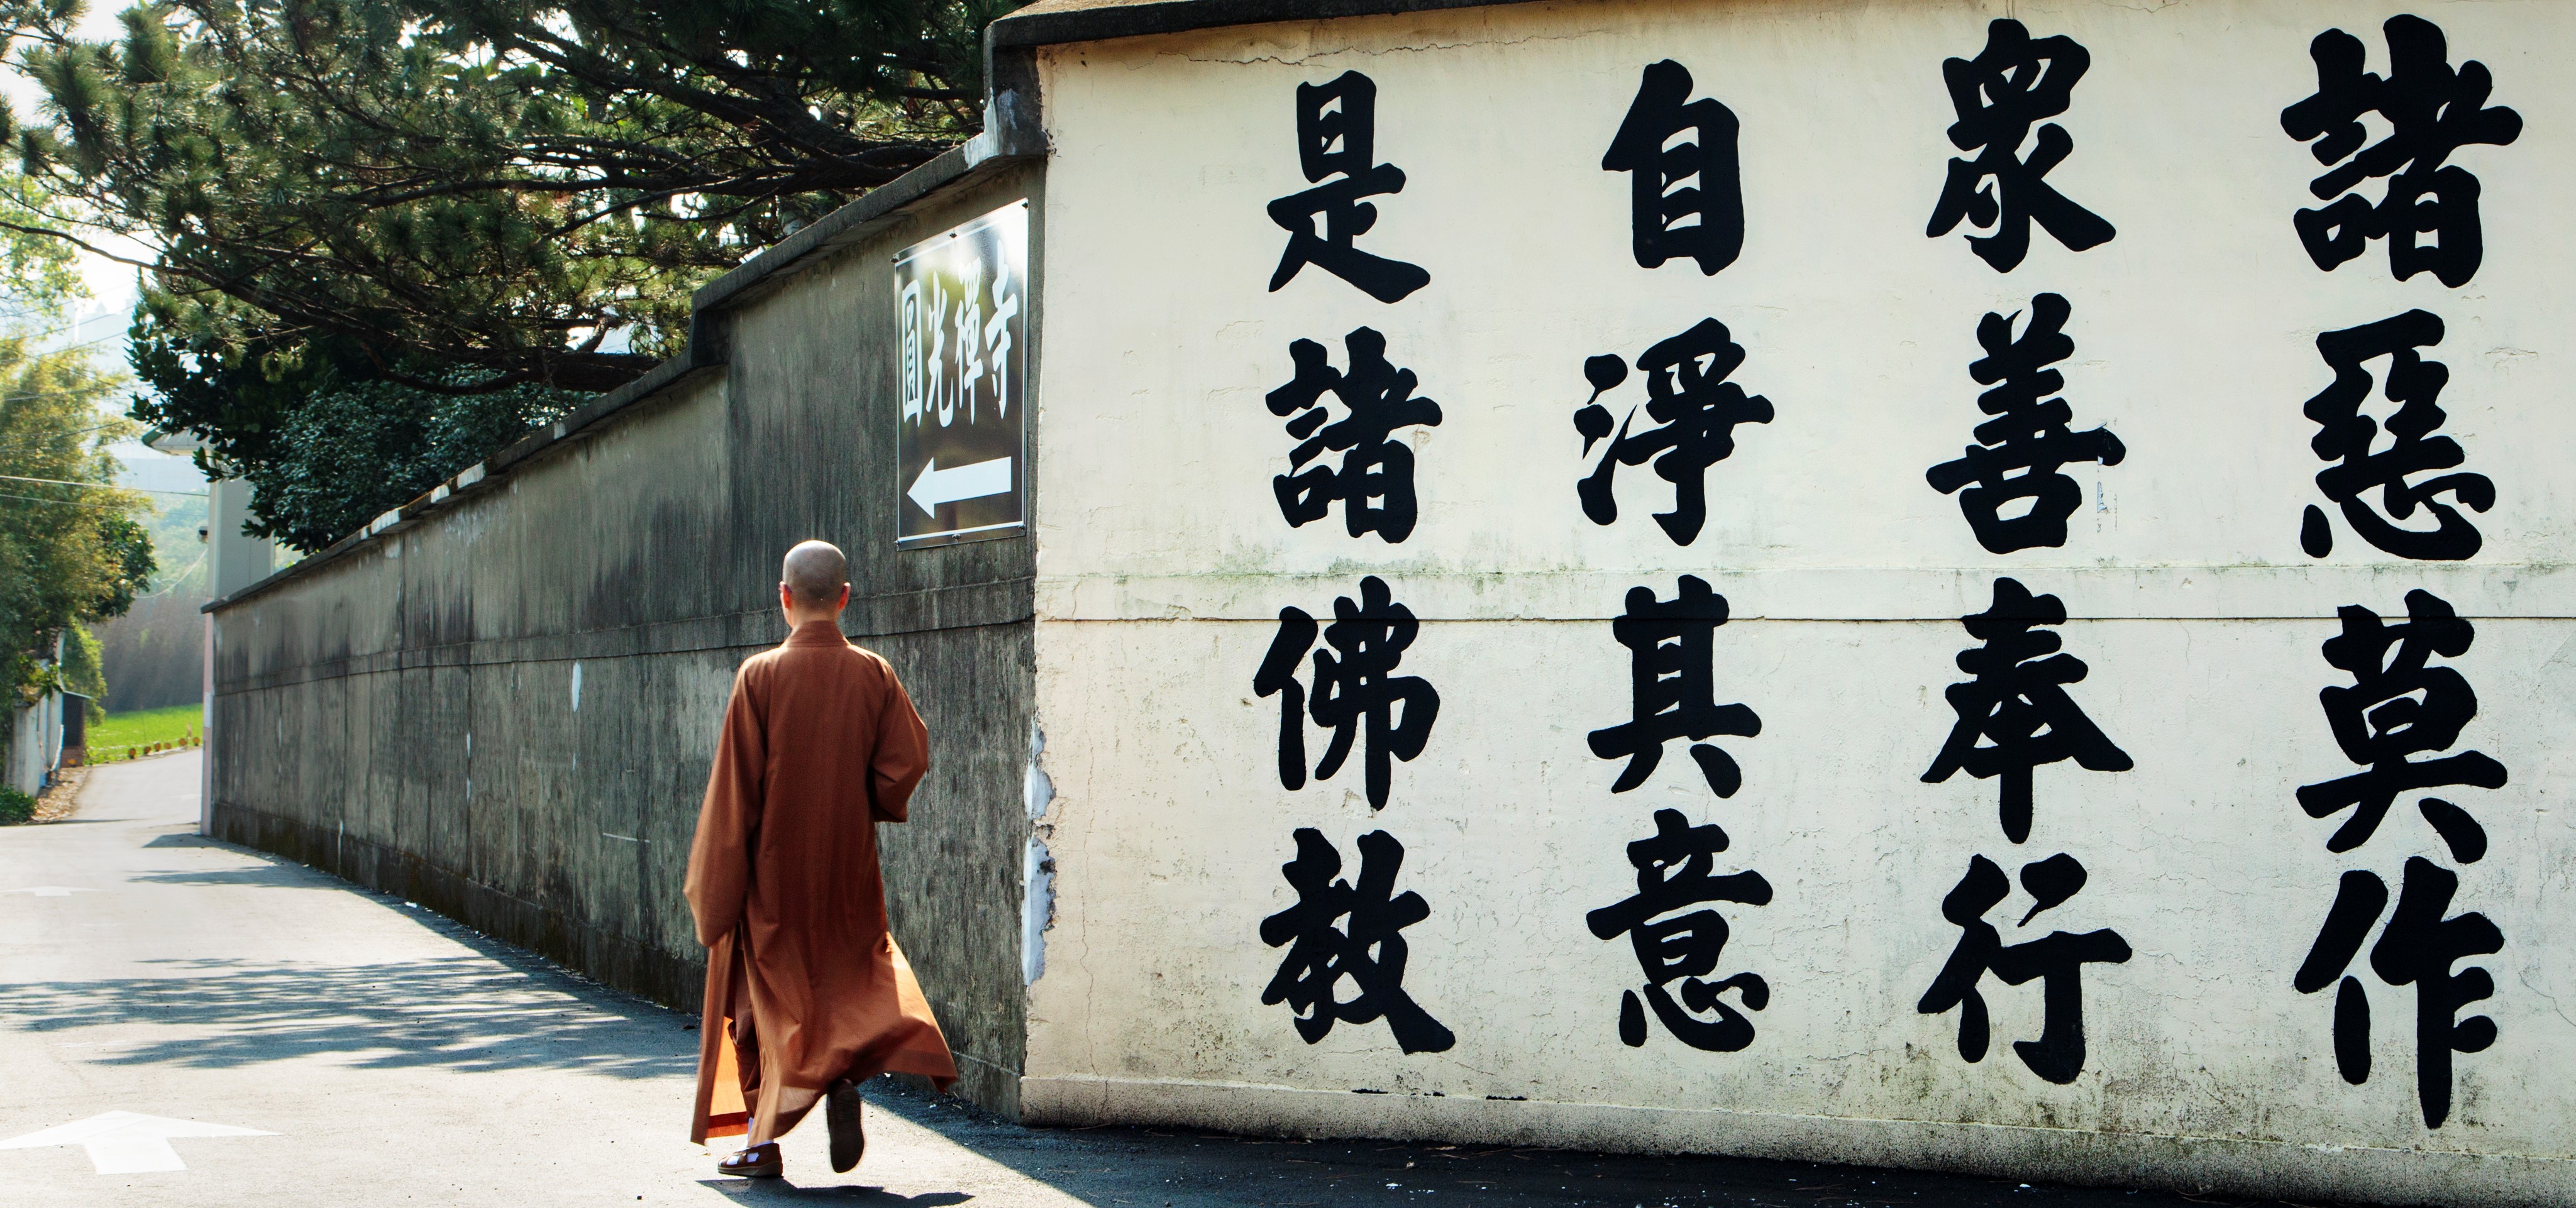 諸惡莫作
眾善奉行
自淨其意
是諸佛教
圓光禪寺